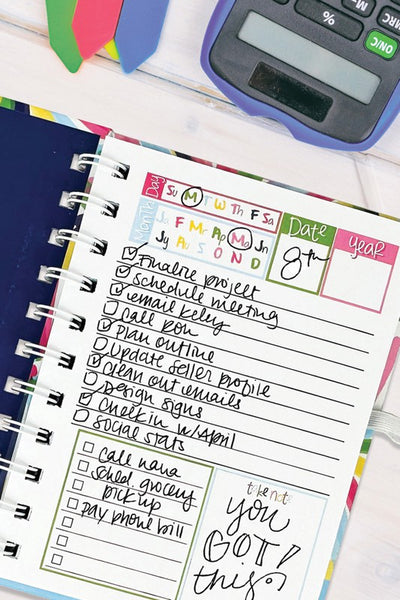 MRC
M-
%
CE
ON
C
Day Su M T W Th F Sa
Month Ja F Mr Ap Ma Jn
Jy Au S O N D
Date
8th
Year
Finalize project
Schedule meeting
email Keley
Call Ron
Plan outline
Update Seller profile
Clean out emails
Design signs
Check in w/April
Social stats
call nana
sched. grocery
pick up
pay phone bill
take note
you
GOT
this!